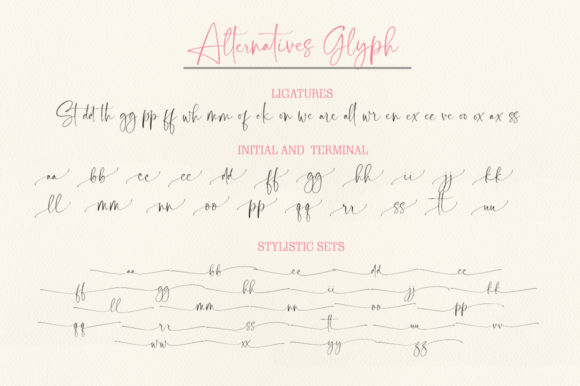 Alternatives Glyph
LIGATURES
St dd th gg pp ff wh mm of ok on we are all wr en ex ee ve oo ox ax ss
INITIAL AND TERMINAL
aa bb cc ee dd ff gg hh ii jj kk
ll mm nn oo pp qq rr ss tt uu
STYLISTIC SETS
aa bb cc dd ee
ff gg hh ii jj kk
ll mm nn oo pp
qq rr ss tt uu vv
ww xx yy zz